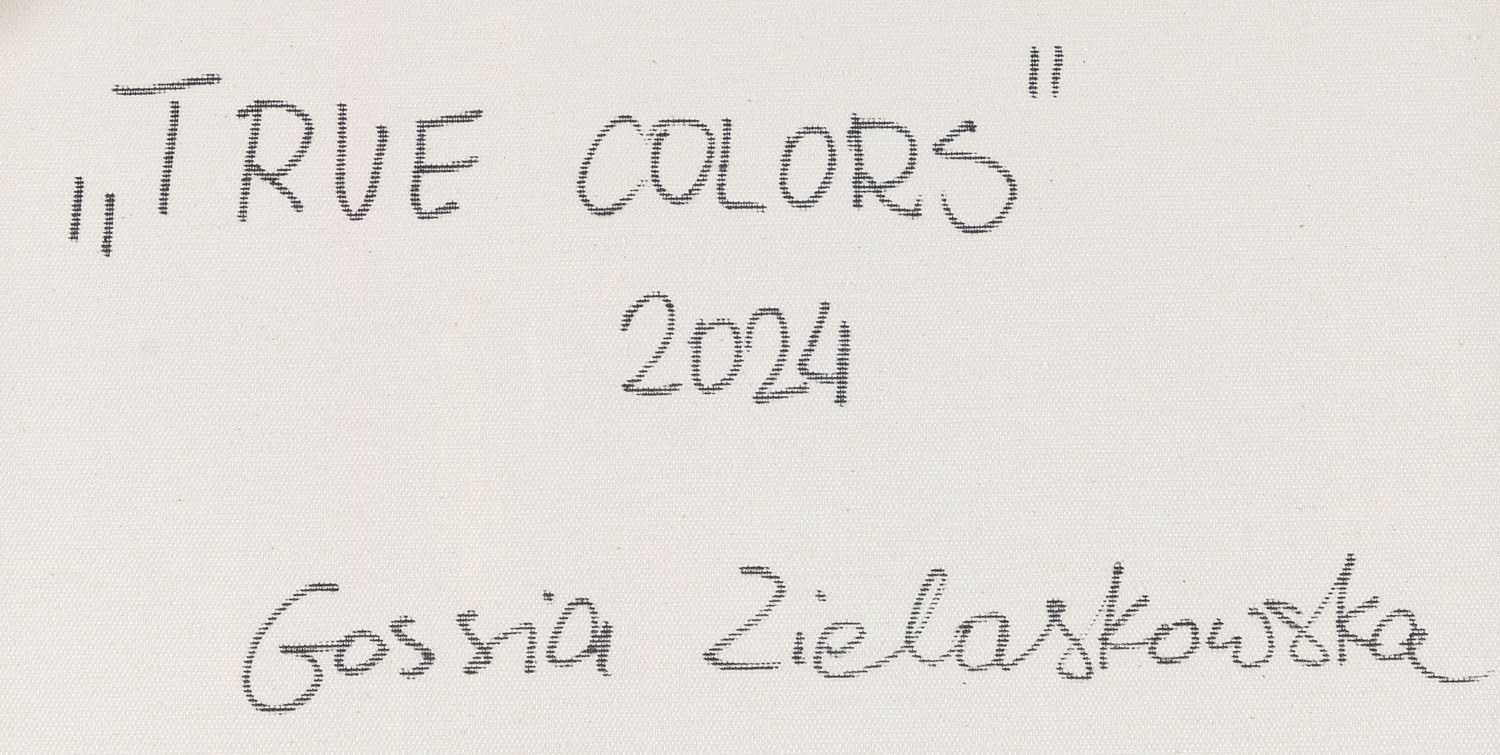 „TRUE COLORS"
2024
Gossia Zielaskowska